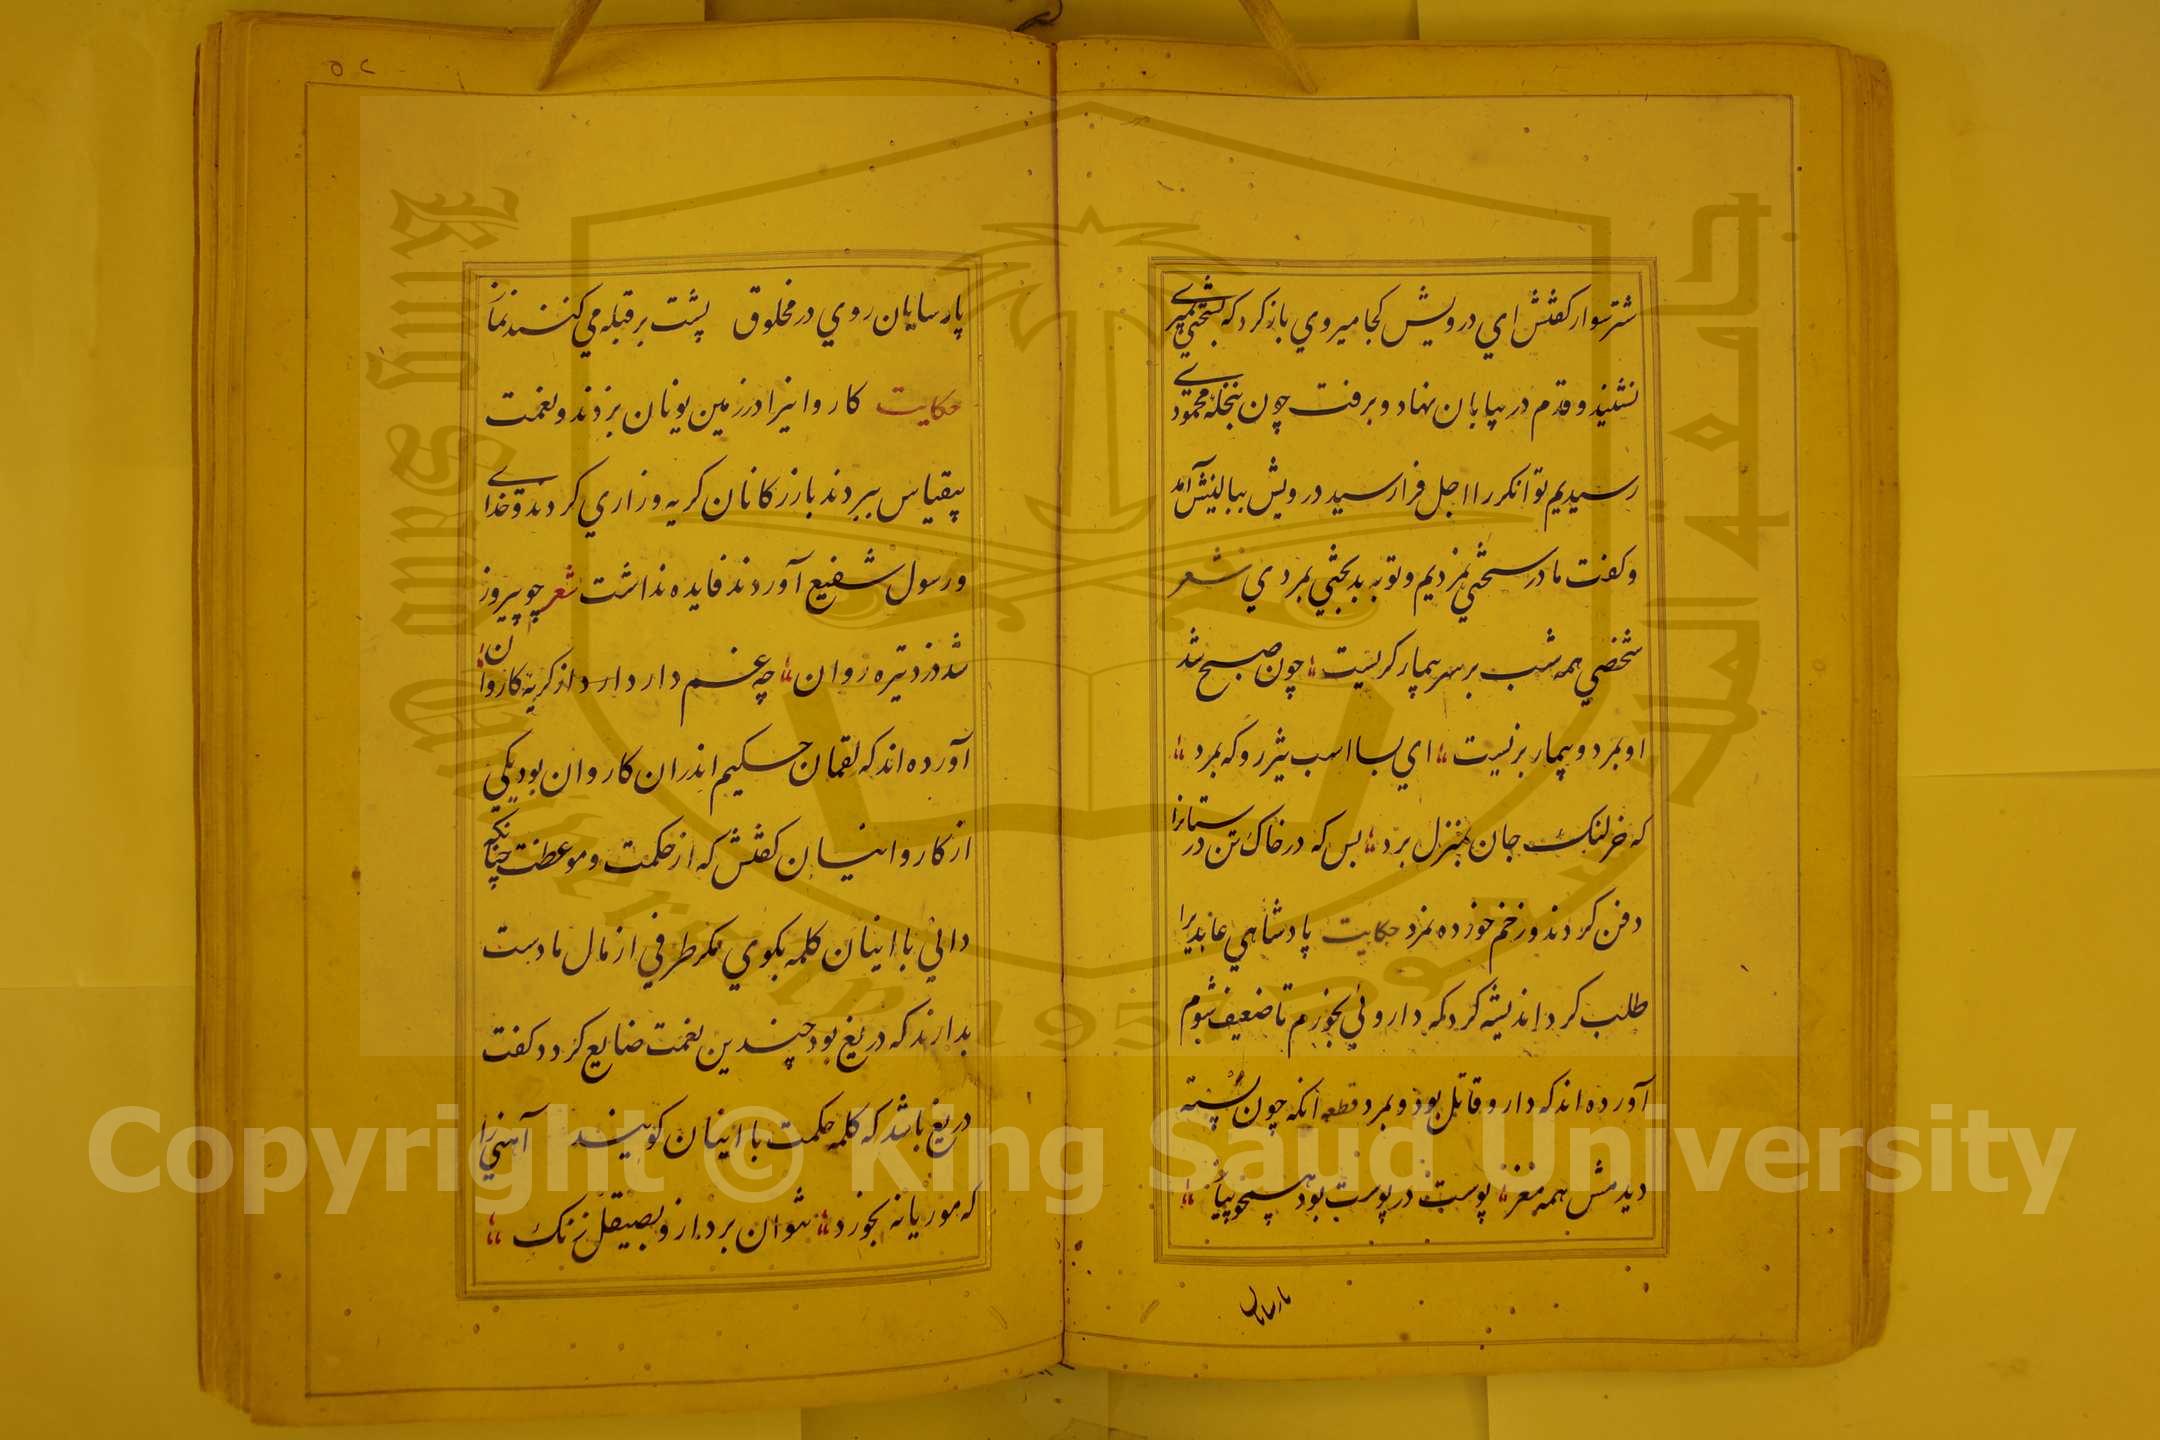 شتر سوار کفتش اي درويش کجا ميروي باز کرد که بسختي بميري
نشنيد و قدم در بيابان نهاد و برفت چون بنخله محمودي
رسيديم توانکر را اجل فرا رسيد درويش ببالينش آمد
و کفت ما در سختي نمرديم و تو به بدبختي بمردي شعر
شخصي همه شب بر سر بيمار کريست چون صبح شد
او بمرد و بيمار بزيست اي بسا اسب تيز رو که بمرد
که خر لنک جان بمنزل برد بس که در خاک تن درستانرا
دفن کردند و زخم خورده نمرد حکايت پادشاهي عابديرا
طلب کرد انديشه کرد که داروئي بخورم تا ضعيف شوم
آورده اند که دارو قاتل بود و بمرد قطعه انکه چون پسته
ديدمش همه مغز پوست در پوست بود همچو پياز
پارسايان
٥٢
پارسايان روي در مخلوق پشت بر قبله مي کنند نماز
حکايت کاروانيرا در زمين يونان بزدند و نعمت
بيقياس ببردند بازرکانان کريه و زاري کردند و خداي
و رسول شفيع آوردند فايده نداشت شعر چو پيروز
شد دزد تيره روان چه غم دارد از کريه کاروان
آورده اند که لقمان حکيم اندران کاروان بود يکي
از کاروانيان کفتش که از حکمت و موعظت چنانکه
داني با اينان کلمه بکوي مکر طرفي از مال ما دست
بدارند که دريغ بود چندين نعمت ضايع کردد کفت
دريغ باشد که کلمه حکمت با اينان کويند آهني را
که موريانه بخورد نتوان برد ازو بصيقل زنک
King Saud University
جامعة الملك سعود
1957
Copyright © King Saud University